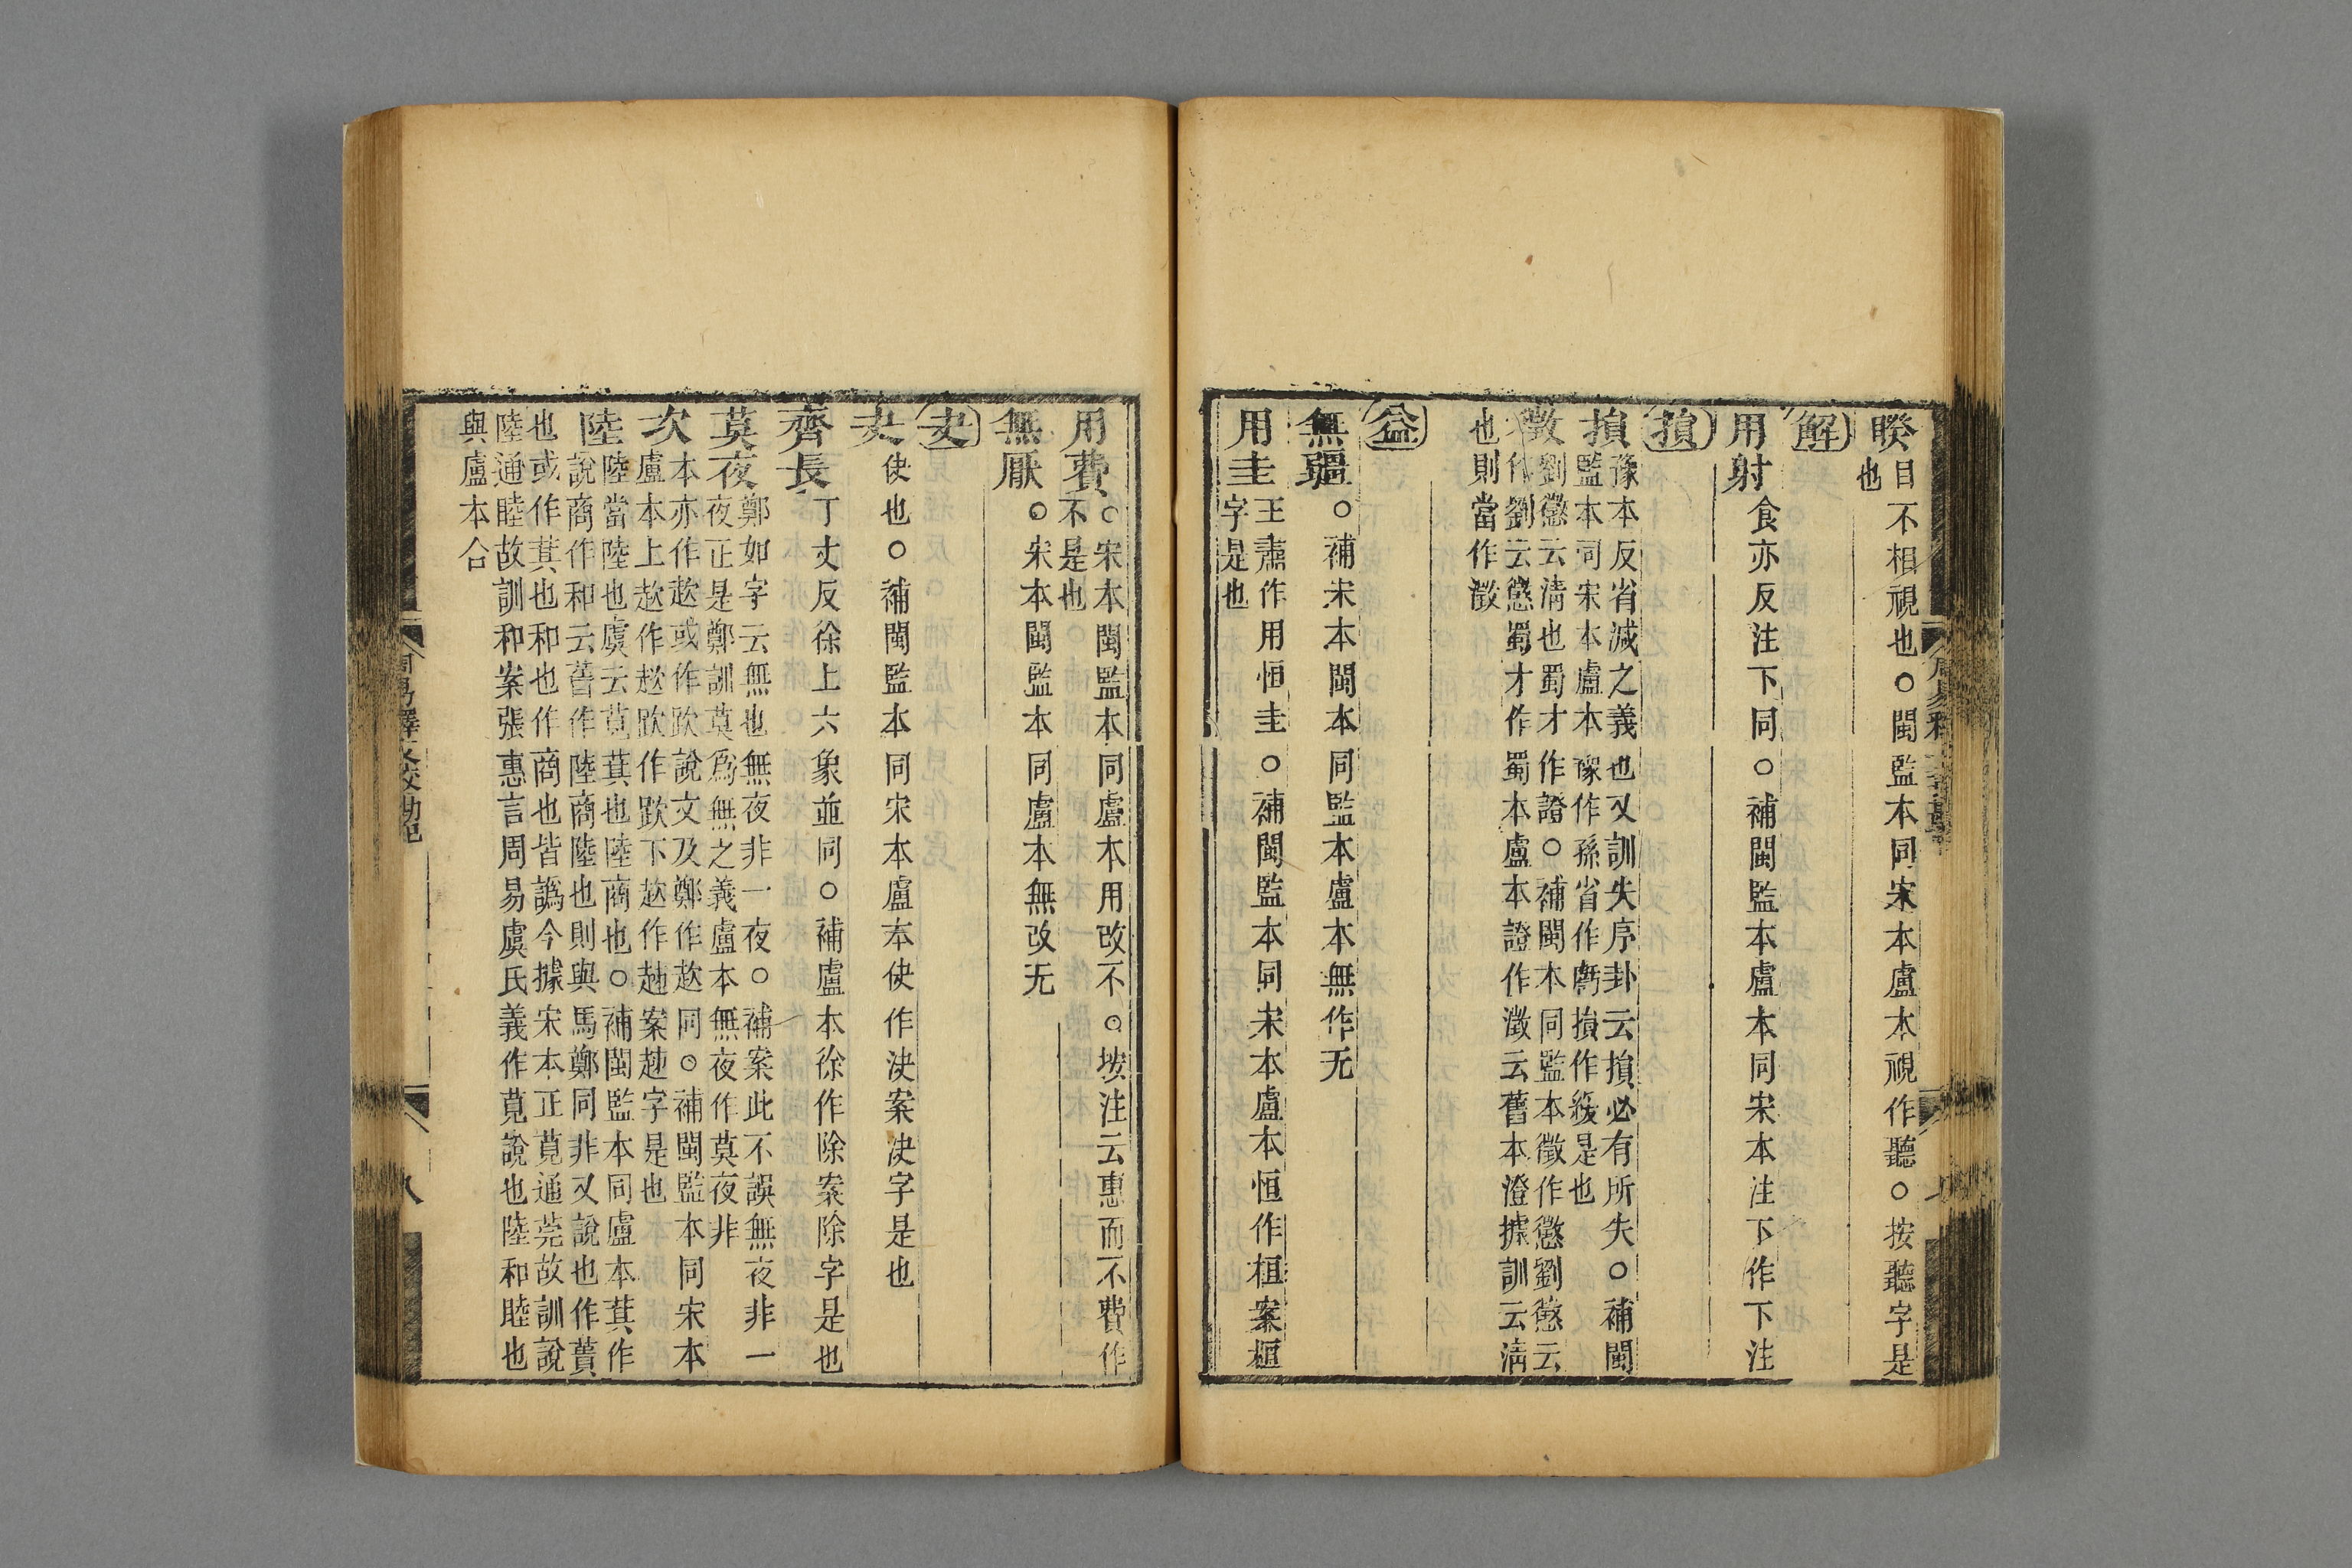 睽目不相視也○閩監本同宋本盧本視作聽○按聽字是
也
解
用射食亦反注下同○補閩監本盧本同宋本注下作下注
損
損豫本反省減之義也又訓失序卦云損必有所失○補閩
監本同宋本盧本豫作孫省作虧損作緩是也
徵劉懲云清也蜀才作證○補閩本同監本徵作懲劉懲云
作劉云懲蜀才作蜀本盧本證作澂云舊本澄據訓云清
也則當作澂
益
無疆○補宋本閩本同監本盧本無作无
用圭王肅作用恒圭○補閩監本同宋本盧本恒作桓案桓
字是也
用費○宋本閩監本同盧本用改不○按注云惠而不費作
不是也
無厭○宋本閩監本同盧本無改无
夬
夬使也○補閩監本同宋本盧本使作決案決字是也
齊長丁丈反徐上六象並同○補盧本徐作除案除字是也
莫夜鄭如字云無也無夜非一夜○補案此不誤無夜非一
夜正是鄭訓莫爲無之義盧本無夜作莫夜非
次本亦作趑或作跂說文及鄭作趑同○補閩監本同宋本
盧本上趑作趑跂作跂下趑作趀案趀字是也
陸陸當陸也虞云莧蕢也陸商也○補閩監本同盧本蕢作
說商作和云舊作陸商陸也則與馬鄭同非又說也作蕢
也或作蕢也和也作商也皆譌今據宋本正莧通莞故訓說
陸通睦故訓和案張惠言周易虞氏義作莧說也陸和睦也
與盧本合
周易釋文校勘記
八